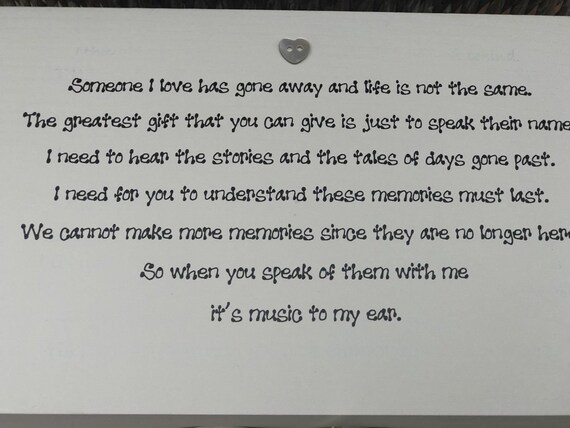 Someone I love has gone away and life is not the same.
The greatest gift that you can give is just to speak their name
I need to hear the stories and the tales of days gone past.
I need for you to understand these memories must last.
We cannot make more memories since they are no longer here
So when you speak of them with me
it's music to my ear.